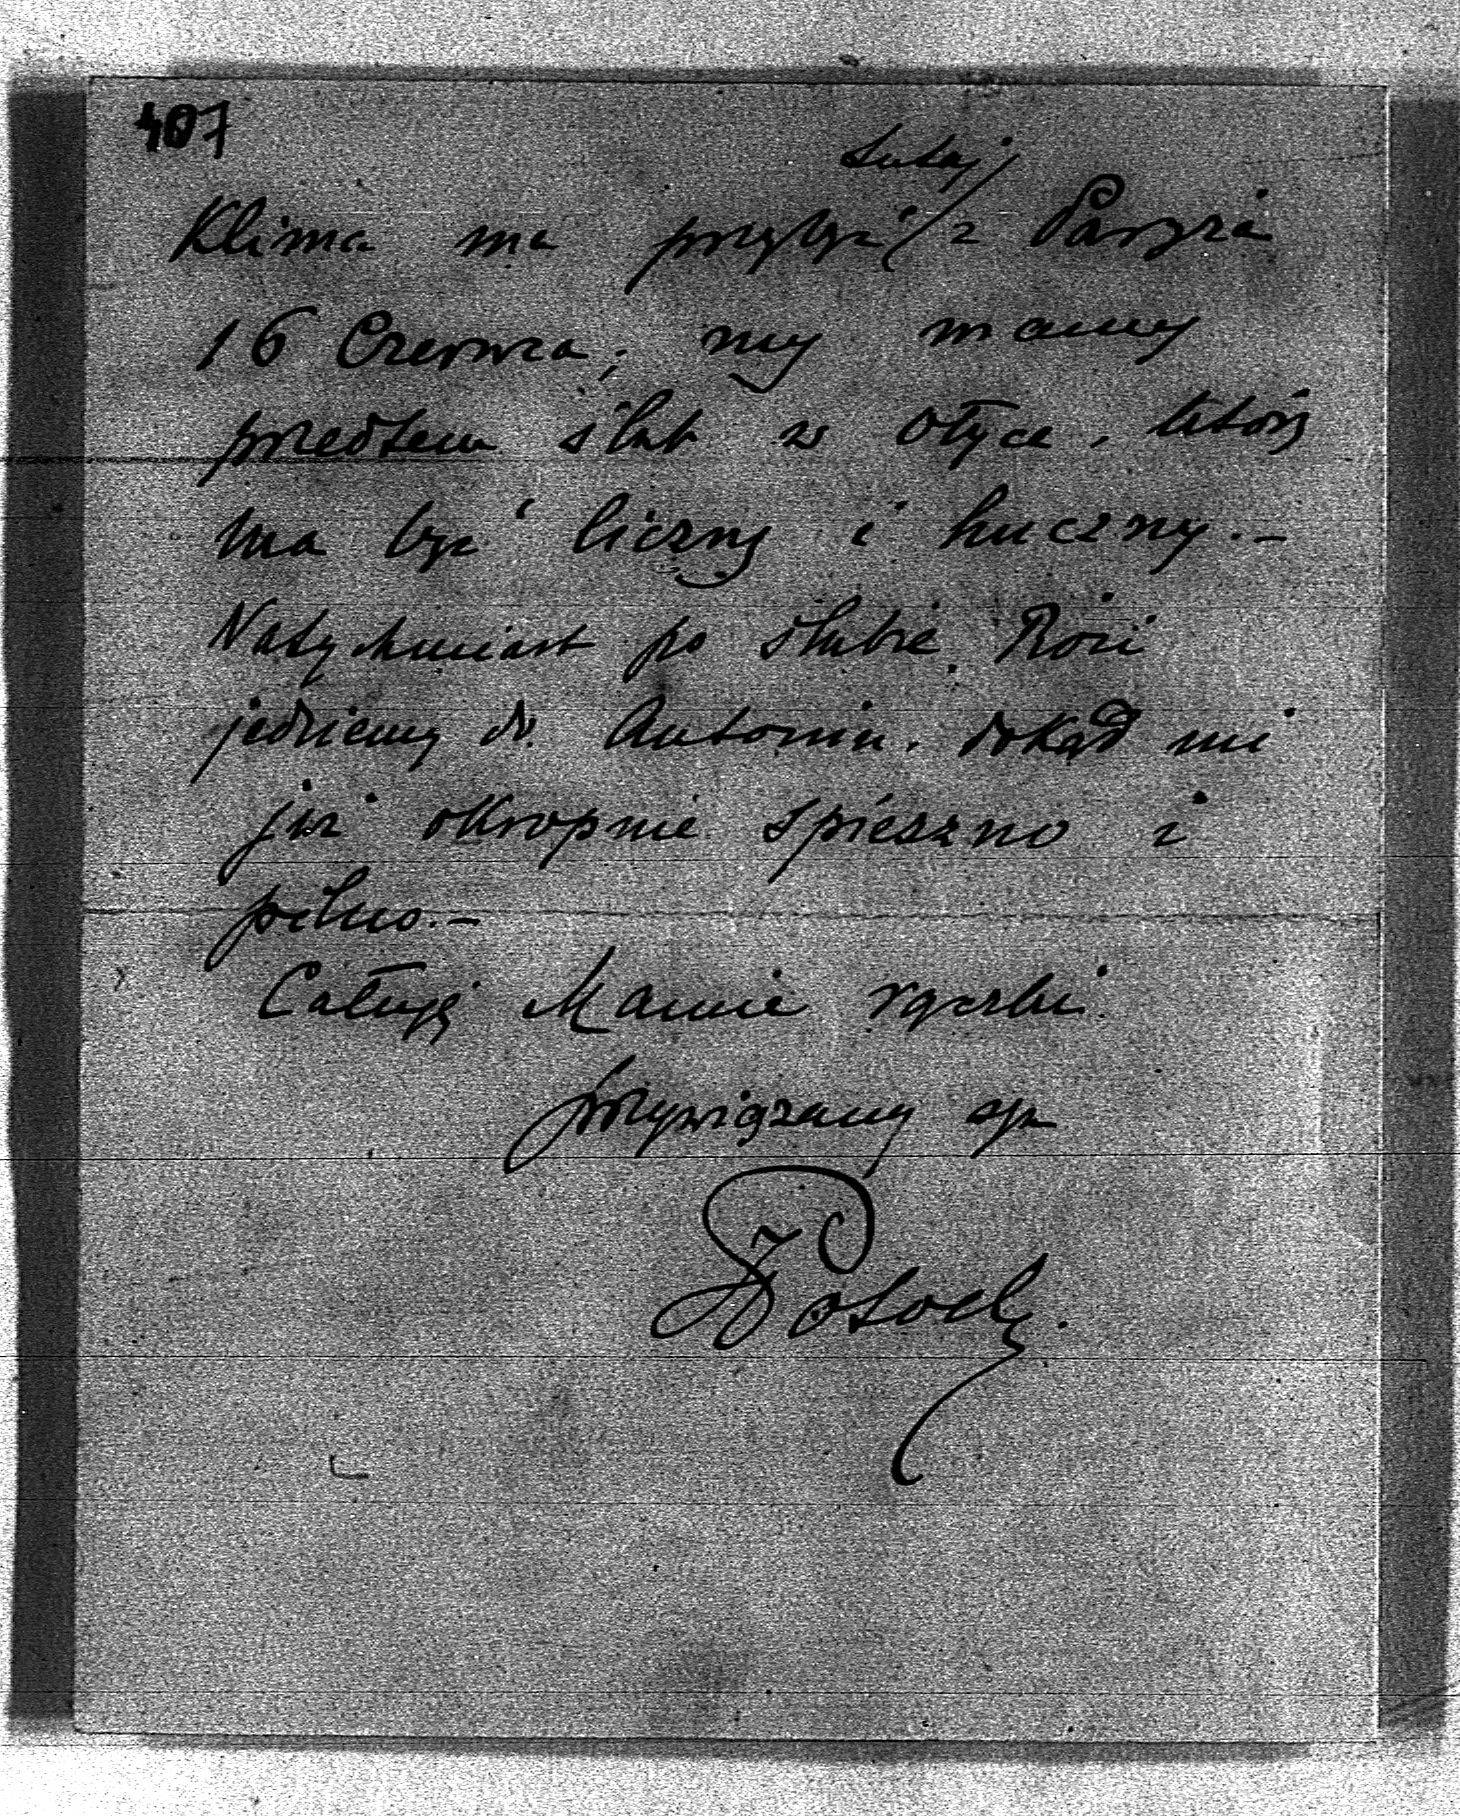 407
tutaj
Klima ma przybyć z Paryża
16 Czerwca; my mamy
przedtem ślub w Ołyce, który
ma być liczny i huczny.–
Natychmiast po ślubie Rózi
jedziemy do Antonin, dokąd mi
już okropnie spieszno i
pilno.–
Całuję Mamie rączki
przywiązany
Potocki.